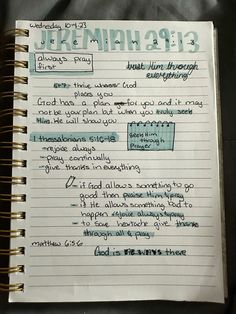 Wednesday 10-4-23
JEREMIAH 29:13
Jeremiah 29:13
always pray first
trust Him through everything
thrive wherever God
places you
God has a plan for you and it may
not be your plan but when you truly seek
Him He will show you
1 thessalonians 5:16-18
→rejoice always
→pray continually
→give thanks in everything
Seek Him through Prayer
→ if God allows something to go
good then praise Him & pray
→ if He allows something bad to
happen rejoice always & pray
→ to save heartache give thanks
through all & pray
matthew 6:5-6
God is always there